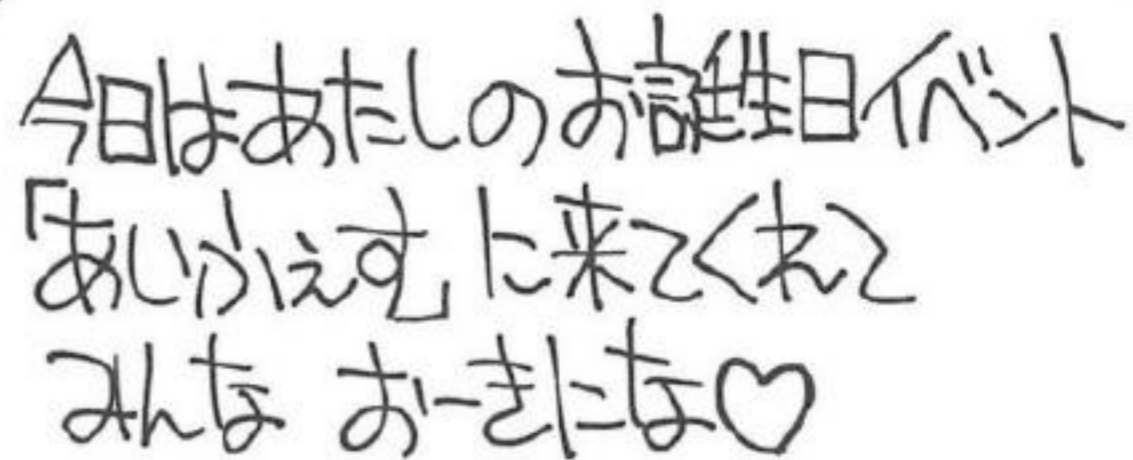 今日はあたしのお誕生日イベント
「あいふぇす」に来てくれて
みんな おーきにな♡